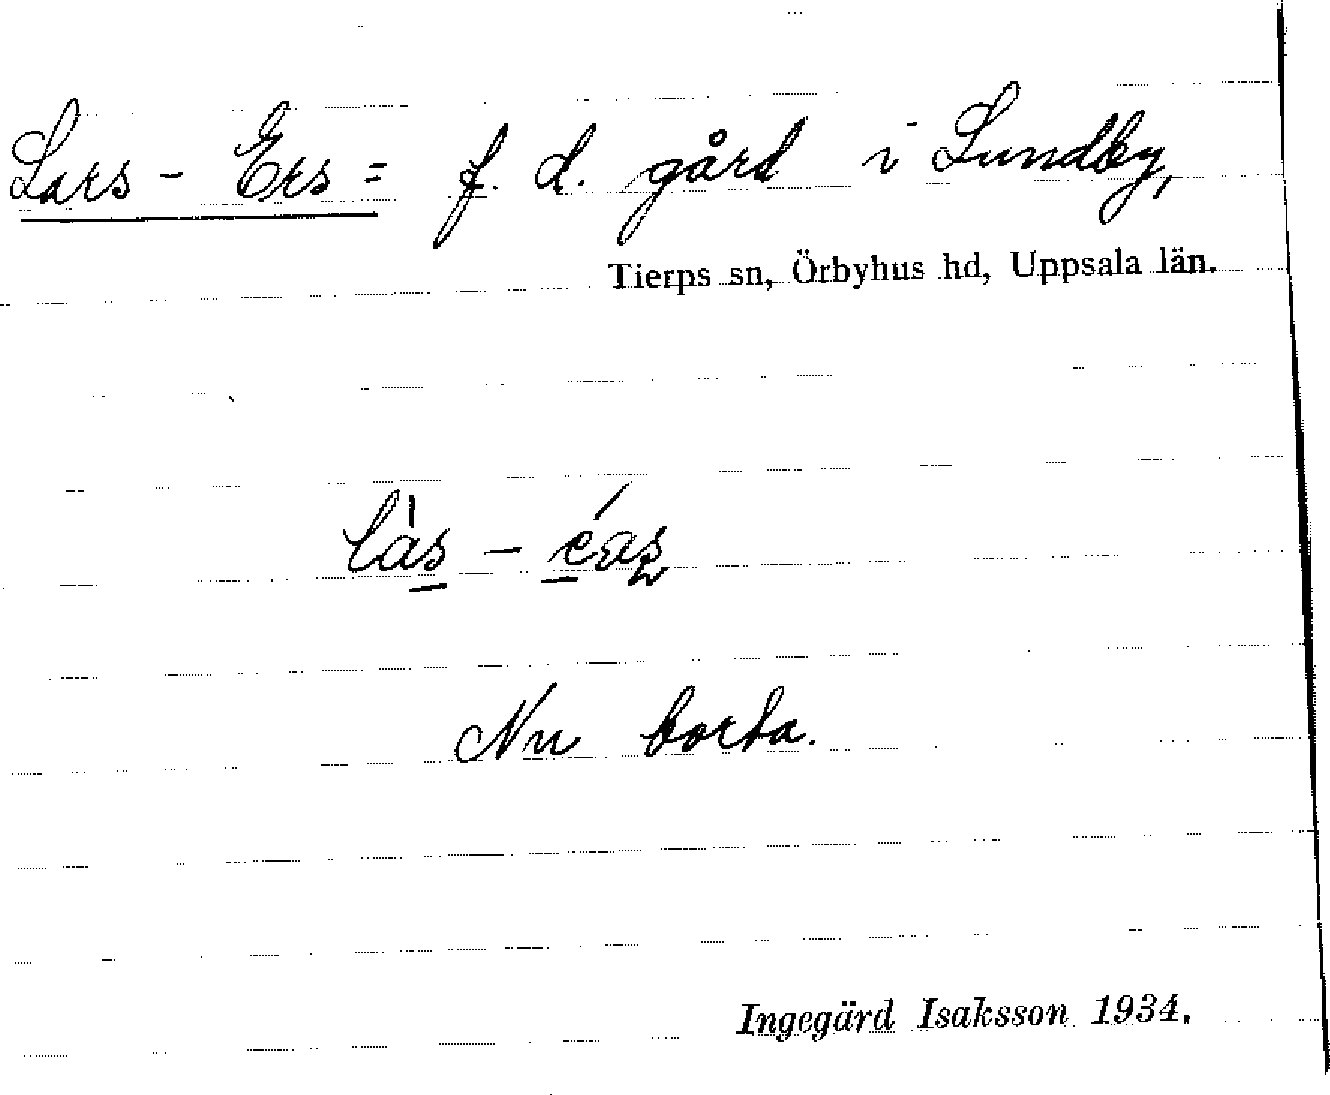 Lars - Ers = f. d. gård i Lundby,
Tierps sn, Örbyhus hd, Uppsala län.
Nu borta.
Ingegärd Isaksson 1934.